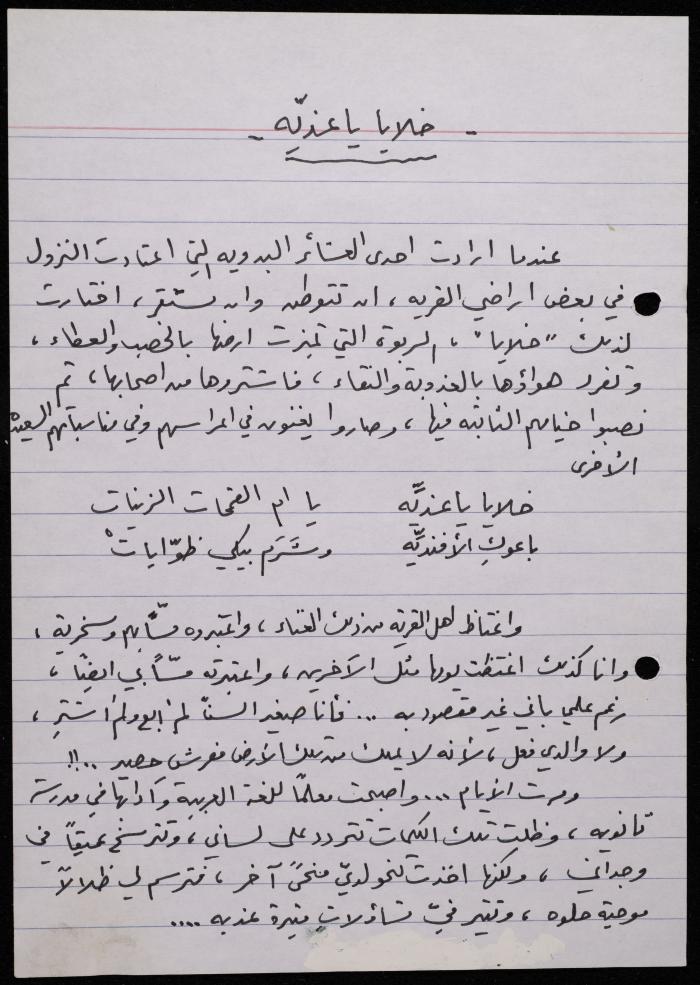 - خلايا يا عذيّه -
عندما ارادت احدى العشائر البدويه التي اعتادت النزول
في بعض اراضي القريه ، ان تتوطن وان تستقر ، اختارت
لذلك "خلايا" ، الربوة التي تميزت ارضها بالخصب والعطاء ،
وتفرد هواؤها بالعذوبة والنقاء ، فاشتروها من اصحابها ، ثم
نصبوا خيامهم الثابته فيها ، وصاروا يغنون في اعراسهم وفي مناسباتهم السعيده
الأخرى
خلايا يا عذيَّه يا ام القمحات الزينات
باعوكِ الأفنديَّه وشَرَم بيكي ظوّايات
واغتاظ اهل القرية من ذلك الغناء ، واعتبروه مسّاً بهم وسخرية ،
وانا كذلك اغتظت يومها مثل الآخرين ، واعتبرته مسّاً بي ايضًا ،
رغم علمي باني غير مقصود به ... فأنا صغير السنّ لم ابع ولم اشترِ ،
ولا والدي فعل ، لأنه لا يملك من تلك الأرض مفرش حصير ..!!
ومرت الأيام .... واصبحت معلمًا للغة العربية وآدابها في مدرسة
ثانويه ، وظلت تلك الكلمات تتردد على لساني ، وتترسخ عميقاً في
وجداني ، ولكنها اخذت تنحو لديّ منحىً آخر ، فترسم لي ظلالاً
موحية حلوه ، وتثير فيّ تساؤلاتٍ مثيرة عذبه ....